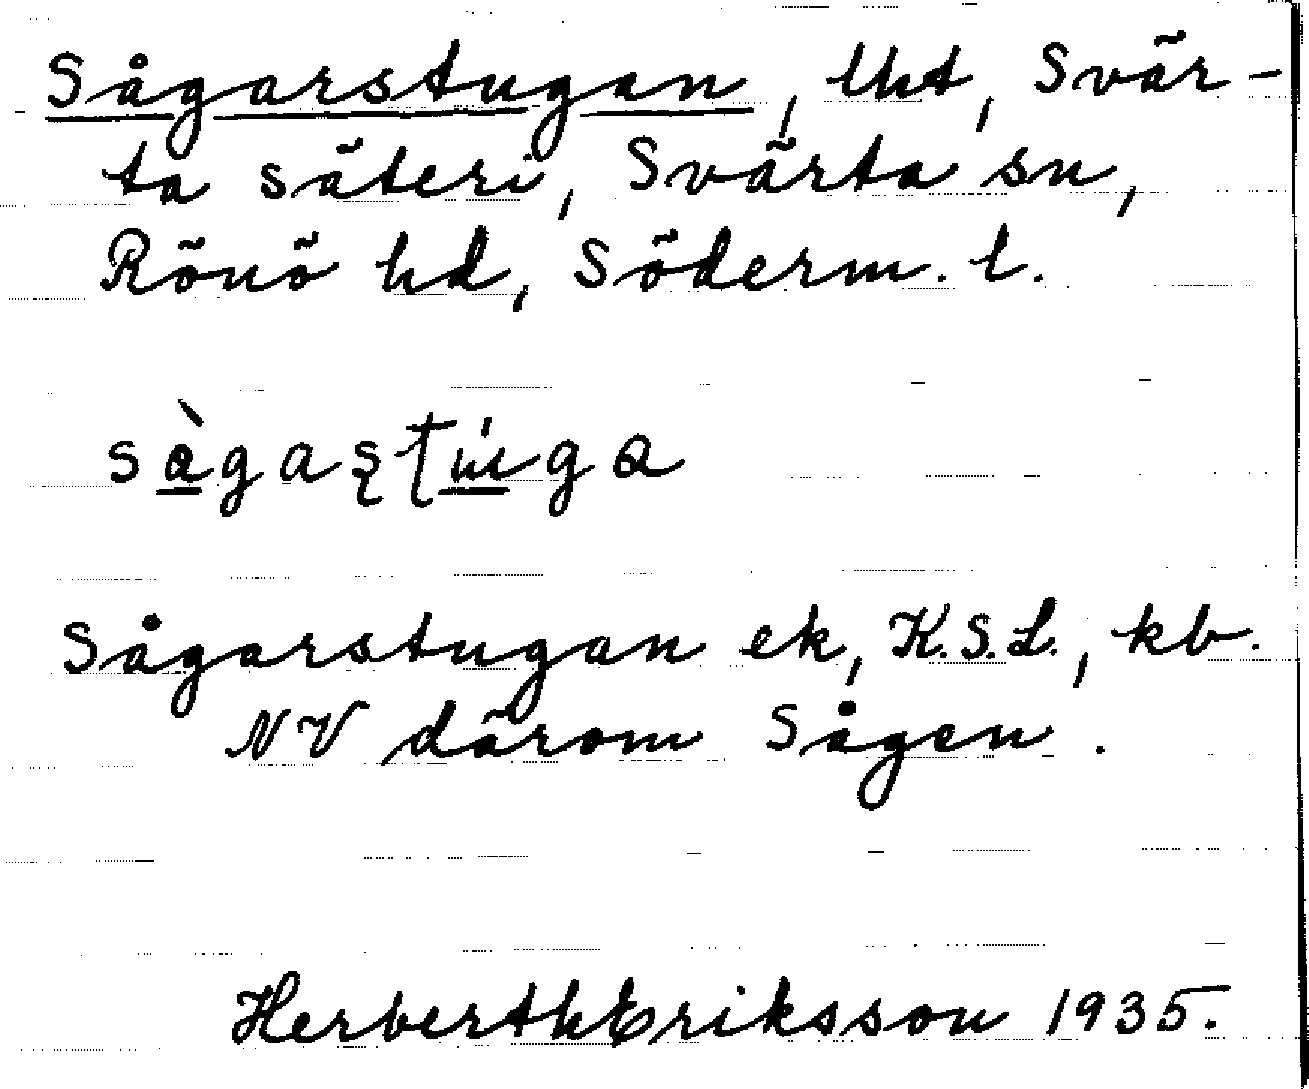 Sågarstugan, lht, Svär-
ta säteri, Svärta sn,
Rönö hd, Söderm. l.
Sågarstugan ek, K.S.L., kb.
NV därom Sågen.
Herberth Eriksson 1935.